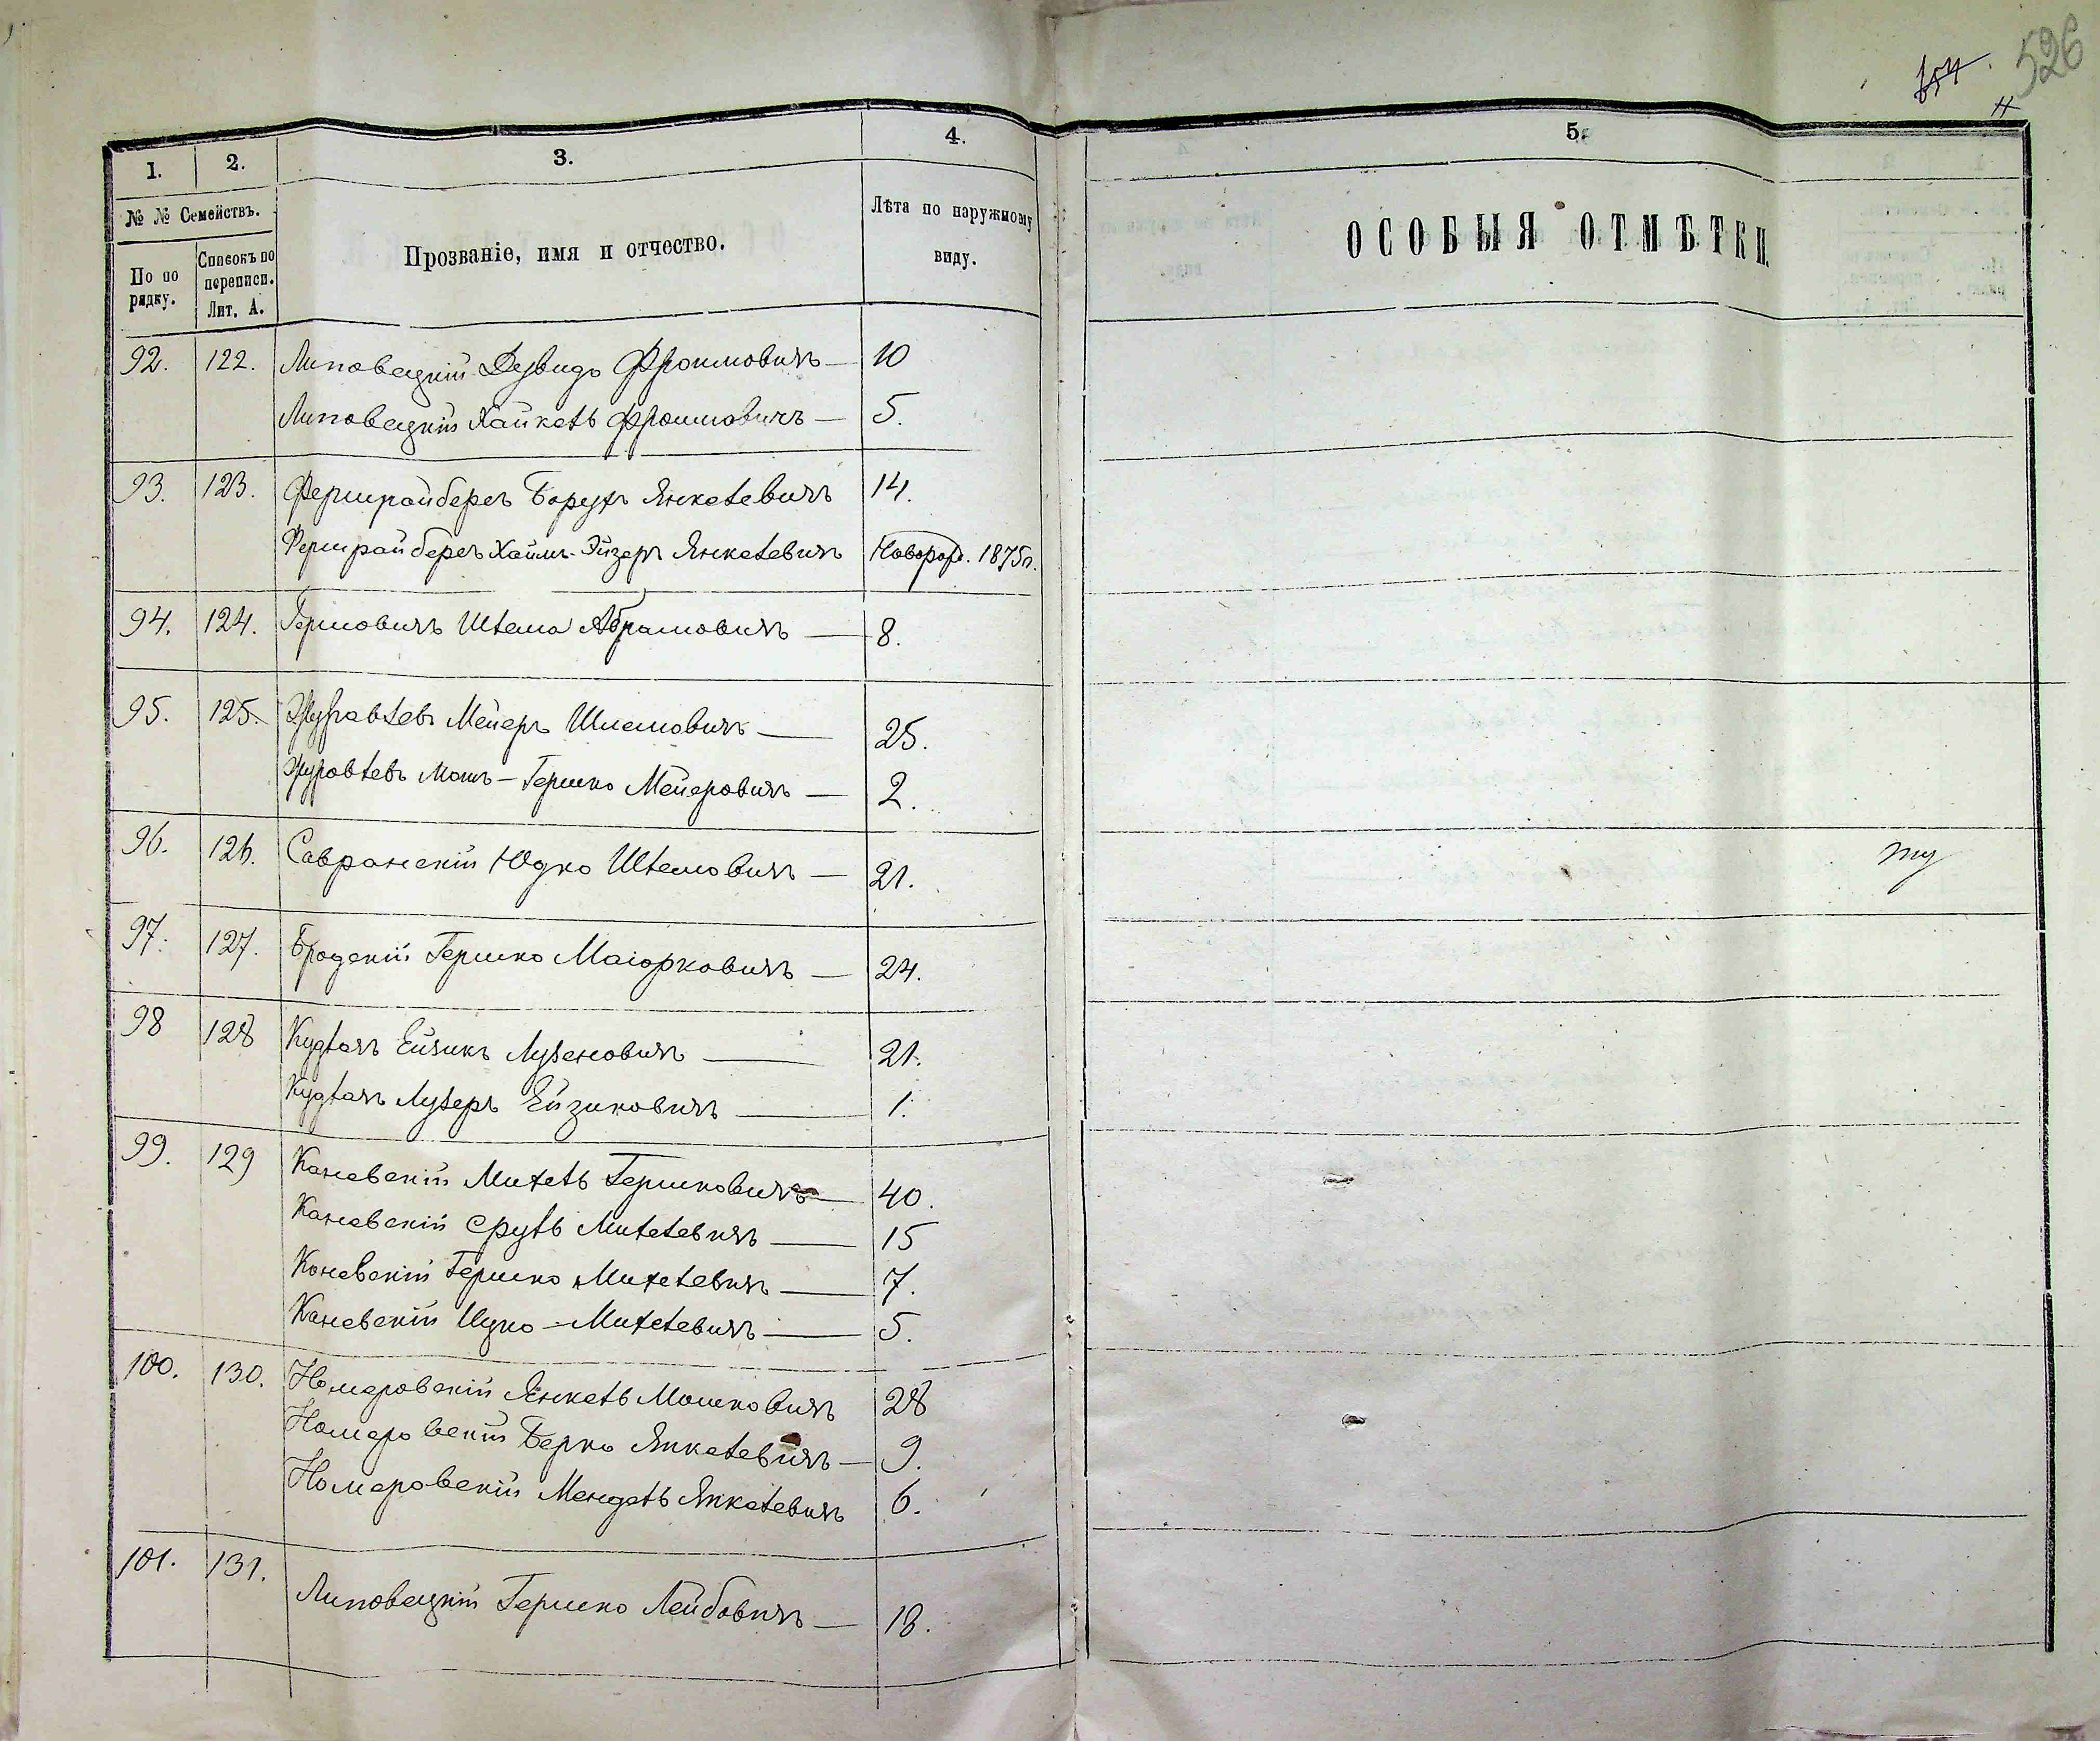 526
1. 2. 3. 4. 5.
№ № Семействъ.
По по рядку.
Списокъ по переписи. Лит. А.
Прозваніе, имя и отчество.
Лѣта по наружному виду.
ОСОБЫЯ ОТМѢТКИ.
92. 122. Липовецкій Дувидъ Фроимовичъ — 10
Липовецкій Хайкель Фроимовичъ — 5.
93. 123. Фершрайберъ Борухъ Янкелевичъ 14.
Фершрайберъ Хаимъ-Эйзеръ Янкелевичъ Новорож. 1875г.
94. 124. Шлема Абрамовичъ — 8.
95. 125. Журавлевъ Мейеръ Шлемовичъ — 25.
Журавлевъ Мошъ-Гершко Мейеровичъ — 2.
96. 126. Савранскій Юдко Шлемовичъ — 21.
97. 127. Бродскій Гершко Маіорковичъ — 24.
98 128 Кудлачъ Ейзикъ — 21.
Кудлачъ Лузеръ Ейзиковичъ — 1.
99. 129 Каневскій Михель Гершковичъ — 40.
Каневскій Сруль Михелевичъ — 15
Каневскій Гершко Михелевичъ — 7.
Каневскій Ицко Михелевичъ — 5.
100. 130. Номеровскій Янкель Мошковичъ 28
Номеровскій Берко Янкелевичъ — 9.
Номеровскій Мендель Янкелевичъ 6.
101. 131. Липовецкій Гершко Лейбовичъ — 18.